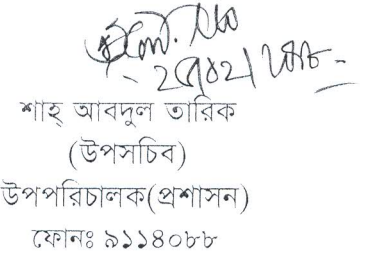 শাহ্ আবদুল তারিক
(উপসচিব)
উপপরিচালক(প্রশাসন)
ফোনঃ ৯১১৪০৮৮